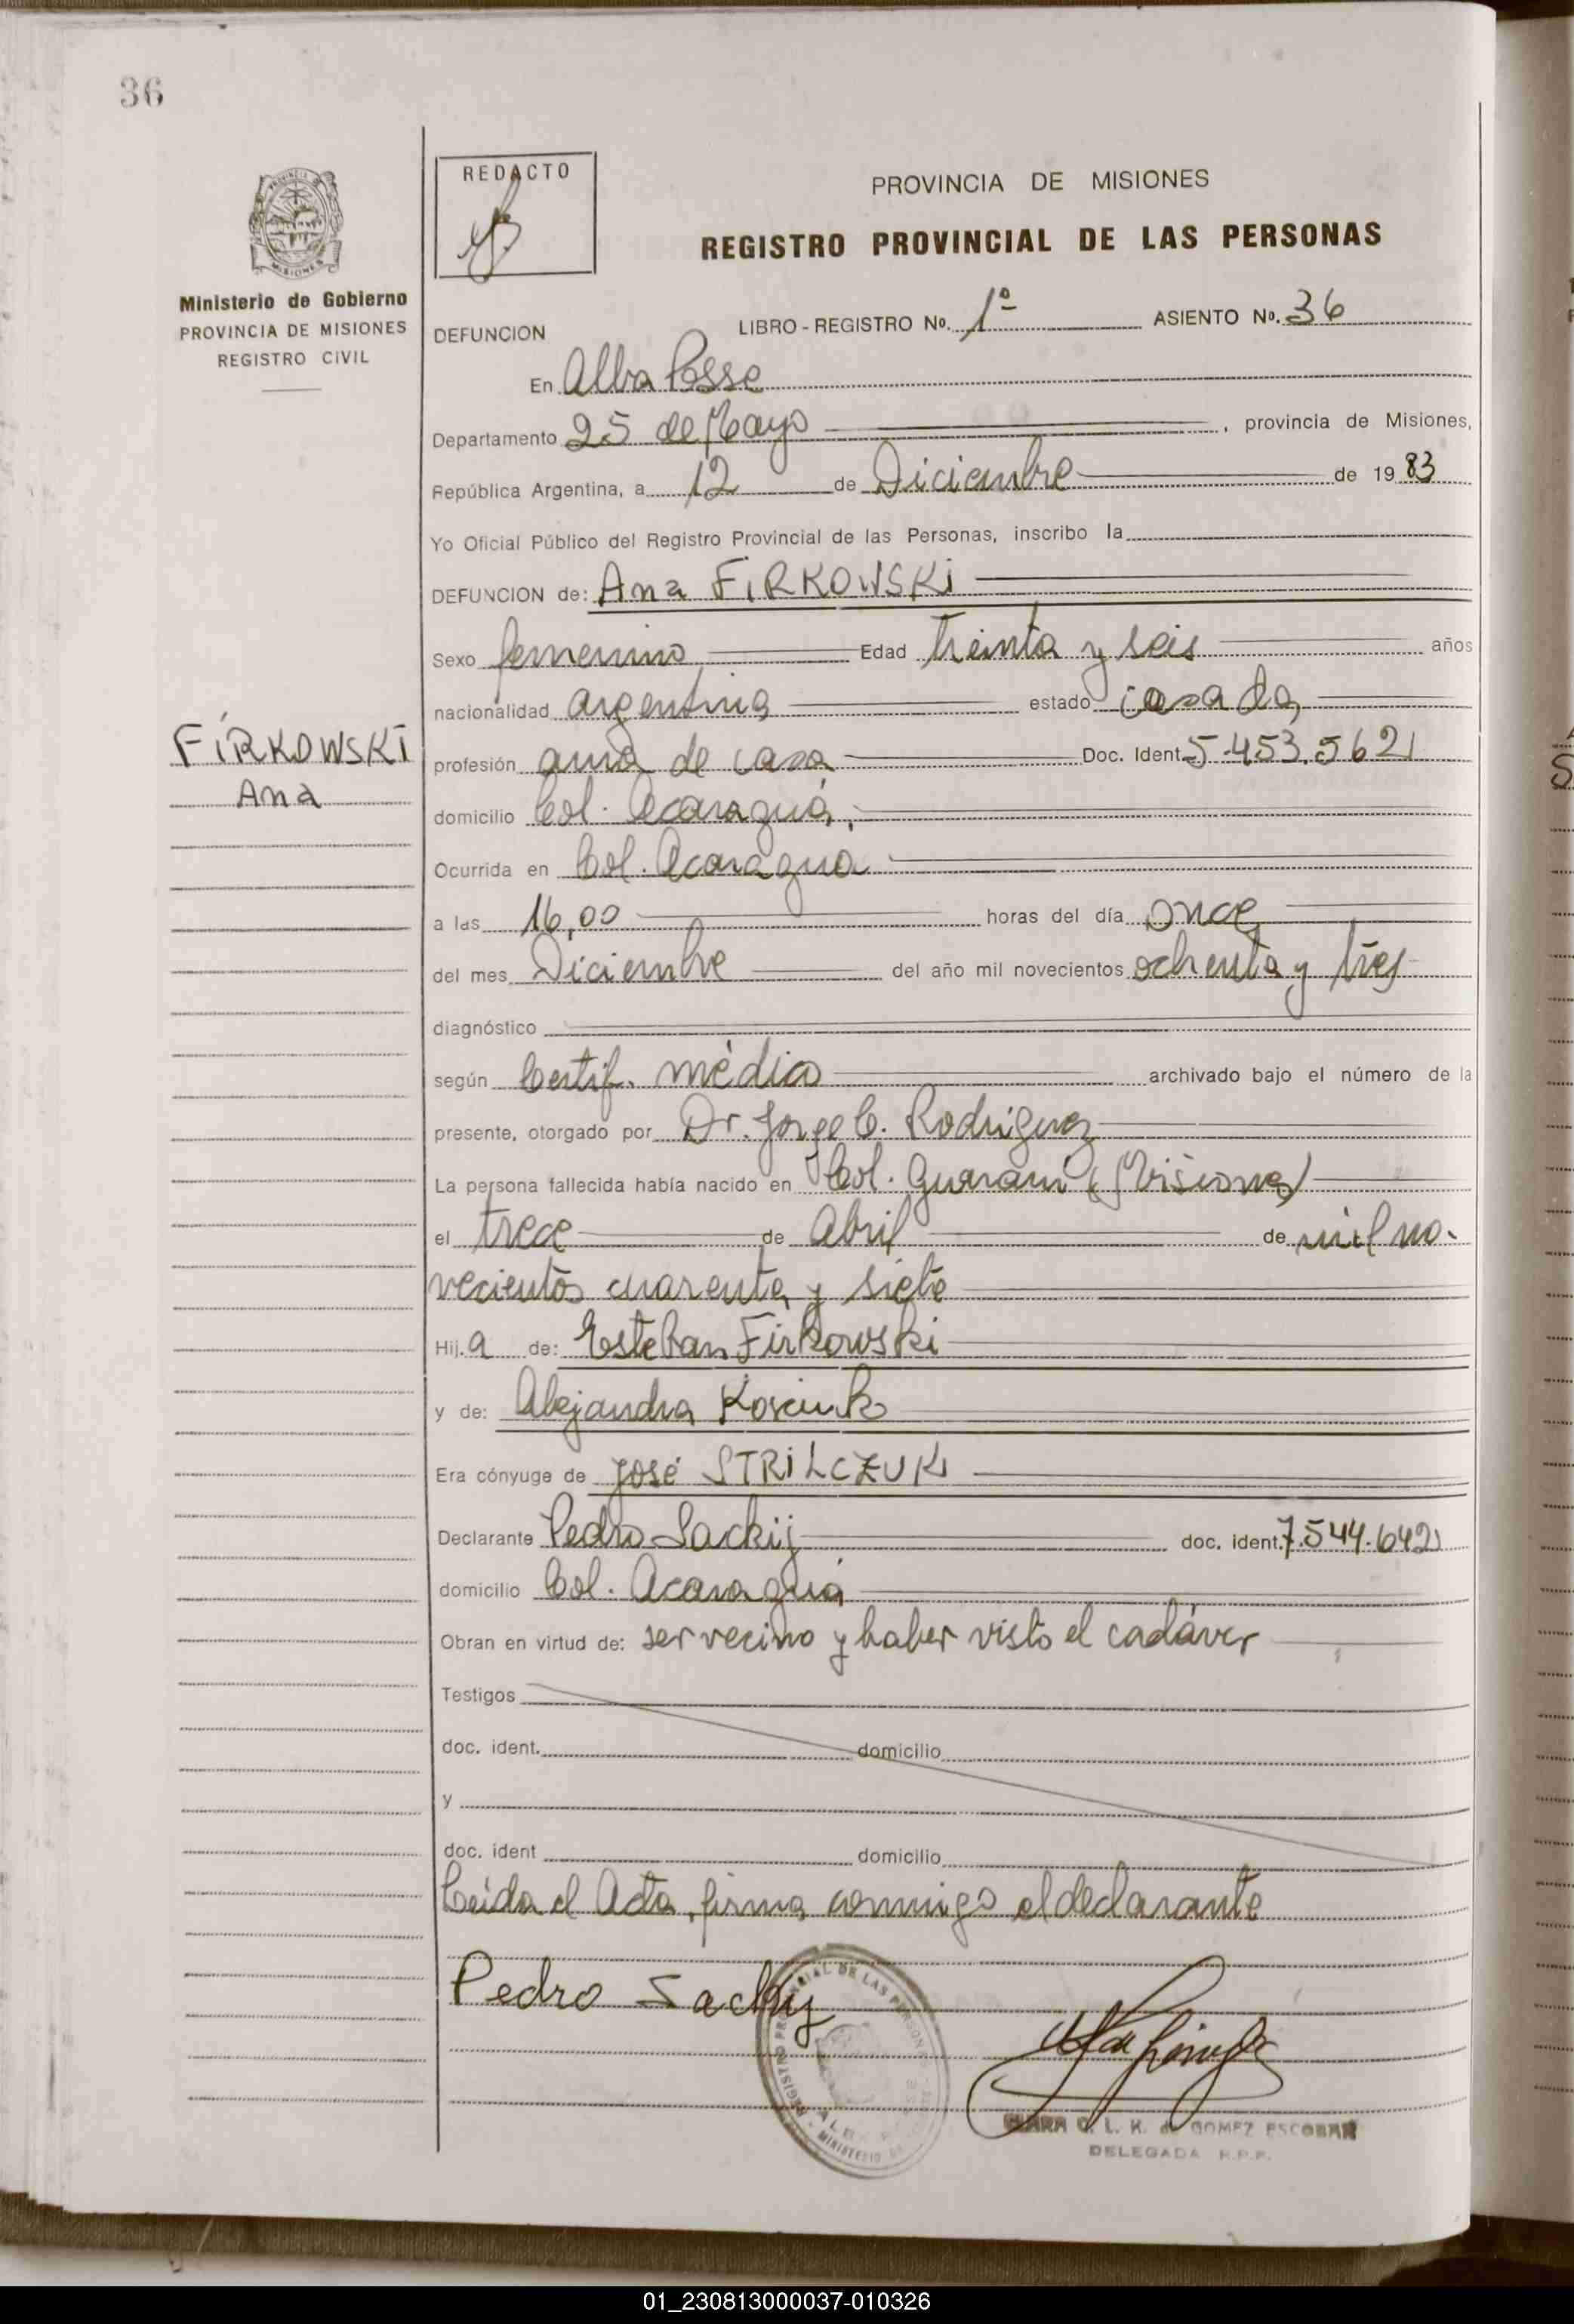 36
REDACTO
PROVINCIA DE MISIONES
REGISTRO PROVINCIAL DE LAS PERSONAS
MISIONES
Ministerio de Gobierno
PROVINCIA DE MISIONES
REGISTRO CIVIL
DEFUNCION LIBRO - REGISTRO No. 1º ASIENTO No. 36
En Alba Posse
Departamento 25 de Mayo, provincia de Misiones,
República Argentina, a 12 de Diciembre de 1983
Yo Oficial Público del Registro Provincial de las Personas, inscribo la
DEFUNCION de: Ana FIRKOWSKI
Sexo femenino Edad treinta y seis años
nacionalidad argentina estado casada
FIRKOWSKI
Ana
profesión ama de casa Doc. Ident. 5.453.562
domicilio Col. Acaraguá,
Ocurrida en Col. Acaraguá
a las 16,00 horas del día once
del mes Diciembre del año mil novecientos ochenta y tres
diagnóstico
según Certif. médico archivado bajo el número de la
presente, otorgado por Dr. Jorge C. Rodriguez
La persona fallecida había nacido en Col. Guaraní (Misiones)
el trece de Abril de mil no-
vecientos cuarenta y siete
Hij.a de: Esteban Firkowski
y de: Alejandra
Era cónyuge de José STRILCZUK
Declarante Pedro Sackij doc. ident. 7.544.642
domicilio Col. Acaraguá
Obran en virtud de: ser vecino y haber visto el cadáver
Testigos
doc. ident. domicilio
y
doc. ident domicilio
Leída el Acta, firma conmigo el declarante
Pedro Sackij
REGISTRO PROVINCIAL DE LAS PERSONAS
MINISTERIO
C. L. K. de GOMEZ ESCOBAR
DELEGADA R.P.P.
01_230813000037-010326